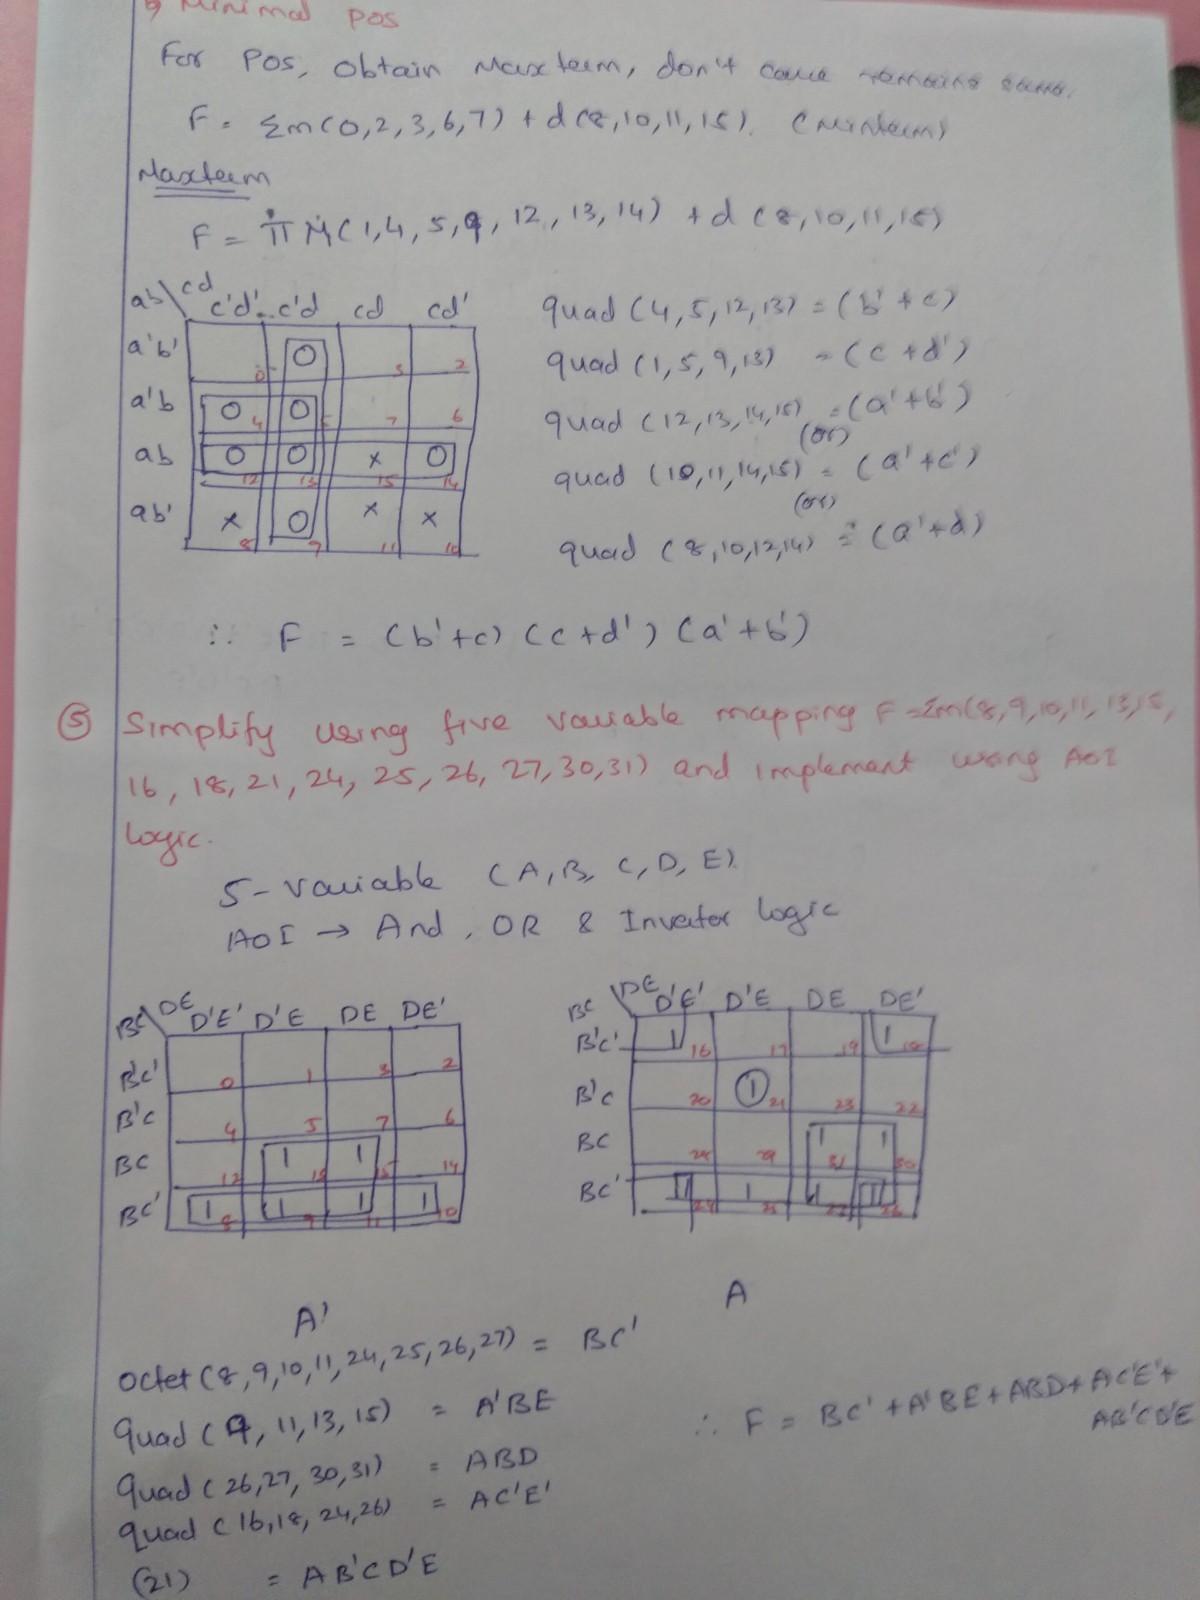 Minimal POS
For POS, Obtain Maxterm, don't care remains same.
F = Σm(0,2,3,6,7) + d(8,10,11,15). (Minterm)
Maxterm
F = πM(1,4,5,9,12,13,14) + d(8,10,11,15)
ab\cd c'd' c'd cd cd'
a'b' 0 O 3 2
a'b O 4 O 5 7 6
ab O 12 O 13 x 15 O 14
ab' x 8 O 9 x 11 x 10
quad (4,5,12,13) = (b'+c)
quad (1,5,9,13) = (c+d')
quad (12,13,14,15) = (a'+b')
(or)
quad (10,11,14,15) = (a'+c')
(or)
quad (8,10,12,14) = (a'+d)
∴ F = (b'+c) (c+d') (a'+b')
⑤ Simplify using five variable mapping F=Σm(8,9,10,11,13,15,
16,18,21,24,25,26,27,30,31) and implement using AOI
logic.
5-variable (A,B,C,D,E)
AOI → And, OR & Inverter logic
BC\DE D'E' D'E DE DE'
B'C' 0 1 3 2
B'C 4 5 7 6
BC 12 1 13 1 15 14
BC' 1 8 1 9 1 11 1 10
A'
BC\DE D'E' D'E DE DE'
B'C' 1 16 17 19 1 18
B'C 20 1 21 23 22
BC 28 29 1 31 1 30
BC' 1 24 1 25 1 27 1 26
A
Octet (8,9,10,11,24,25,26,27) = BC'
Quad (9,11,13,15) = A'BE
Quad (26,27,30,31) = ABD
quad (16,18,24,26) = AC'E'
(21) = AB'CD'E
∴ F = BC' + A'BE + ABD + AC'E' +
AB'CD'E